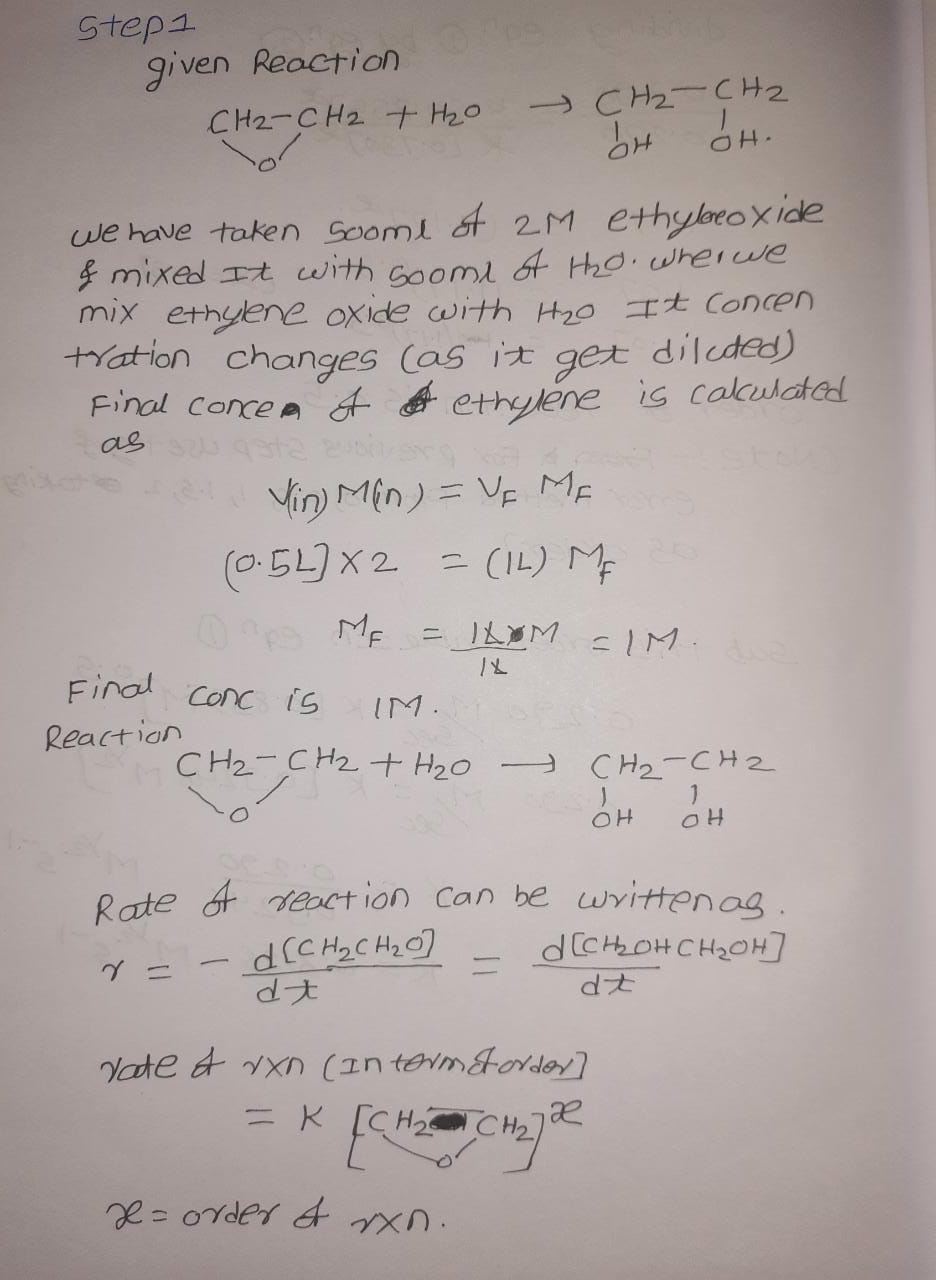 Step 1
given Reaction
CH2-CH2 + H2O → CH2-CH2
O OH OH.
we have taken 500ml of 2M ethyleneoxide
& mixed It with 500ml of H2O. wher we
mix ethylene oxide with H2O It concen
tration changes (as it get diluted)
Final concen of ethylene is calculated
as
V(in) M(in) = VF MF
(0.5L] X 2 = (1L) MF
MF = 1L M / 1L = 1M.
Final conc is 1M.
Reaction
CH2-CH2 + H2O → CH2-CH2
O OH OH
Rate of reaction can be written as.
r = - d[CH2CH2O] / dt = d[CH2OHCH2OH] / dt
rate of rxn (In term of order]
= K [CH2 CH2]x
O
x = order of rxn.